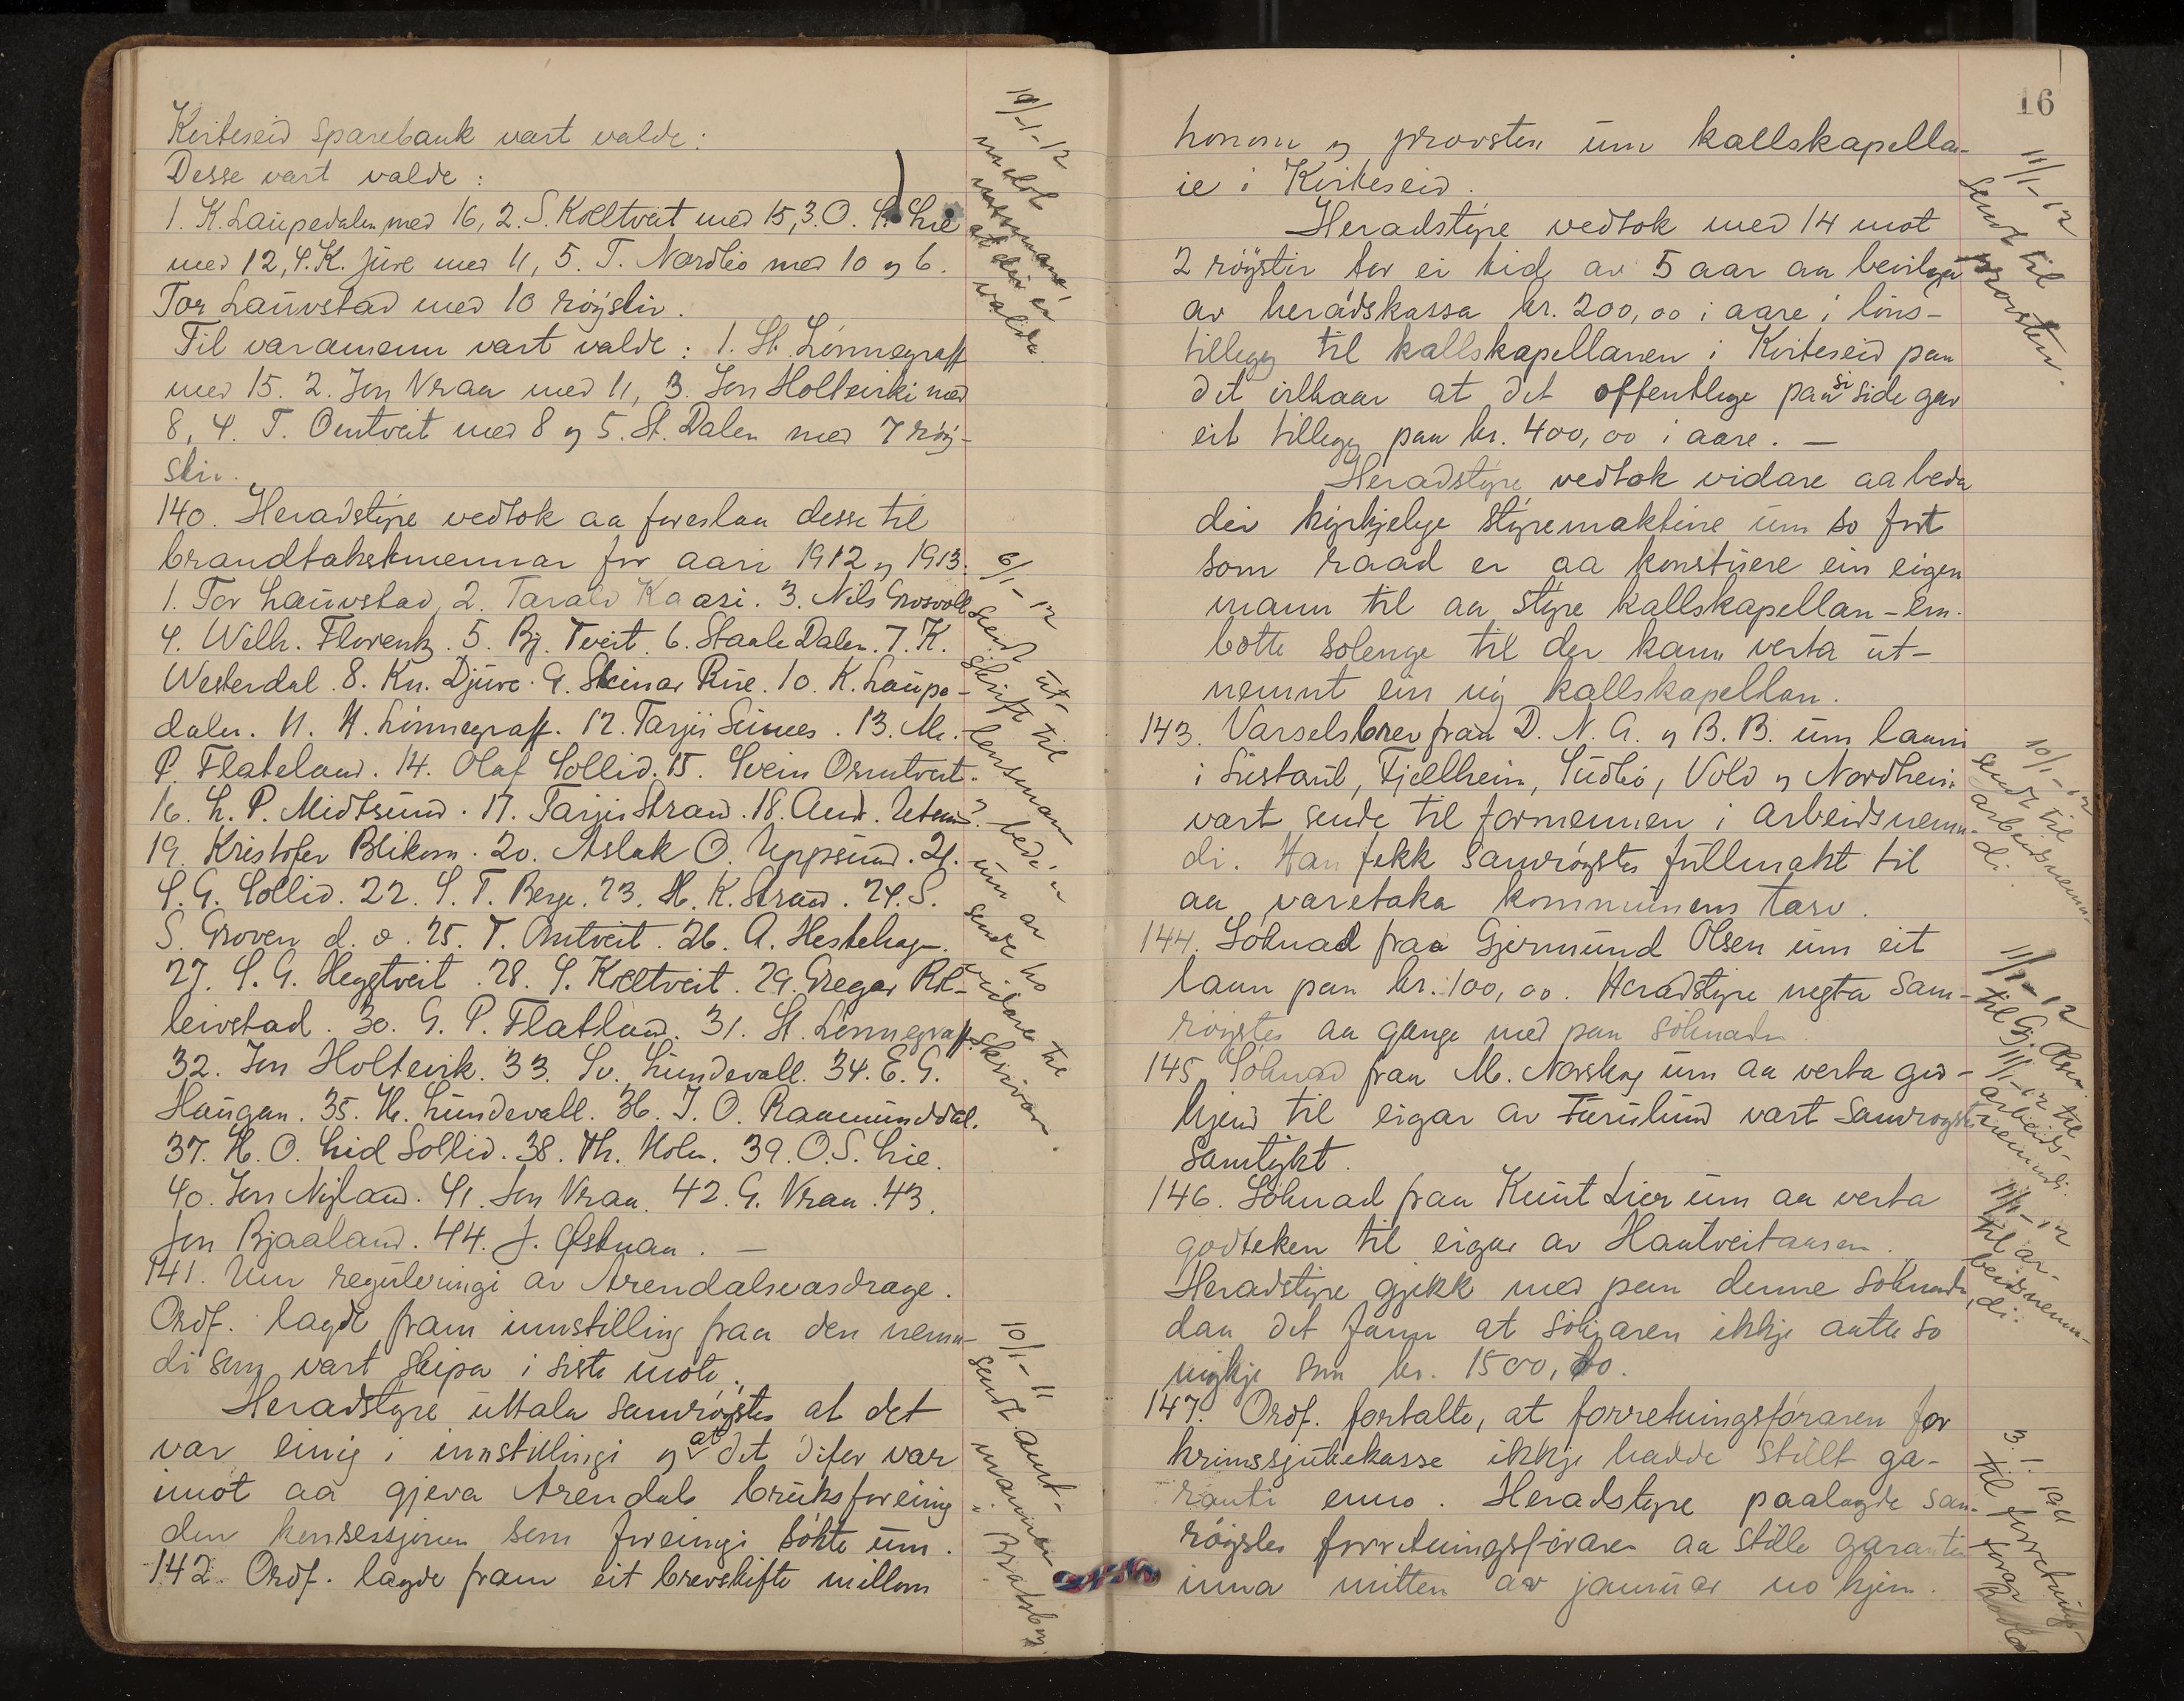 Kviteseid sparebank vart valde:
Desse vart valde:
1. K. Laupedalen med 16, 2. S. Kvelltveit med 15, 3. O. S. Lie
med 12, 4. K. Juve med 11, 5. T. Nordbö med 10 og 6.
Tor Lauvstad med 10 röyster.
Til varamenn vart valde: 1. St. Lönnegraff
med 15. 2. Jon Vraa med 11, 3. Jon Holtvirki med
8, 4. T. Omtveit med 8 og 5. St. Dalen med 7 röy-
ster.
140. Heradstyre vedtok aa fyreslaa desse til
brandtakstmennar for aari 1912 og 1913.
1. Tor Lauvstad, 2. Tarald Kaasi. 3. Nils Grosvoll
4. Wilh. Florentz. 5. Bj. Tveit. 6. Staale Dalen. 7. K.
Westerdal. 8. Kn. Djuve. 9. Steinar Rue. 10. K. Laupe-
dalen. 11. H. Lönnegraff. 12. Tarjei Seines. 13. M.
P. Flateland. 14. Olaf Sollid. 15. Svein Omtveit.
16. L. P. Midtsund. 17. Tarjei Strand. 18. And. Utsund.
19. Kristofer Blikom. 20. Aslak O. Uppsund. 21.
S. G. Sollid. 22. S. T. Berge. 23. H. K. Strand. 24. S.
S. Groven d. o. 25. T. Omtveit. 26. A. Hestehag.
27. S. G. Heggtveit. 28. S. Kvelltveit. 29. Gregar Rol-
leivstad. 30. G. P. Flatland. 31. St. Lönnegraff.
32. Jon Holtevirk. 33. Sv. Lundevall. 34. E. G.
Haugan. 35. H. Lundevall. 36. J. O. Raamunddal.
37. H. O. Lid Sollid. 38. Th. Holm. 39. O. S. Lie.
40. Jon Nyland. 41. Jon Vraa. 42. G. Vraa. 43.
Jon Bjaaland. 44. J. Østmaa. —
141. Um reguleringi av Arendalsvasdrage.
Ordf. lagde fram innstilling fraa den nemn-
di som vart skipa i siste möte.
Heradstyre uttala samröystes at det
var einig i innstillingi og at det difor var
imot aa gjeva Arendals bruksforeining
den konsessjonen som foreiningi sökte um.
142. Ordf. lagde fram eit brevskifte millom
19/1-12
medelt
mennane
at dei er
valde.
6/1-12
Sendt ut-
skrift til
lensmann
bede'n
um aa
sende ho
vidare til
skrivar.
10/1-11
sendt amt-
mannen
i Bratsberg.
16
honom og provsten um kallskapella-
ie i Kviteseid.
Heradstyre vedtok med 14 mot
2 röyster for ei tid av 5 aar aa bevilga
av heradskassa kr. 200,00 i aare i löns-
tillegg til kallskapellanen i Kviteseid paa
det vilkaar at det offentlege paa si side gav
eit tillegg paa kr. 400,00 i aare. —
Heradstyre vedtok vidare aa beda
dei kyrkjelege styremaktine um so fort
som raad er aa konstituere ein eigen
mann til aa styre kallskapellan-em-
bötte solenge til der kann verta ut-
nemnt ein ny kallskapellan.
143. Varselsbrev fraa D. N. A. og B. B. um laani
i Sustaul, Fjellheim, Sudbö, Vold og Nordheim
vart sende til formennen i arbeidsnemn-
di. Han fekk samröystes fullmakt til
aa varetaka kommunens tarv.
144. Söknad fraa Gjermund Olsen um eit
laan paa kr. 100,00. Heradstyre negta sam-
röystes aa gange med paa söknaden.
145. Söknad fraa M. Norskog um aa verta god-
kjend til eigar av Furulund vart samröystes
samtykt.
146. Söknad fraa Knut Lier um aa verta
godteken til eigar av Hantveitaasen.
Heradstyre gjekk med paa denne söknaden,
daa det fann at sökjaren ikkje aatte so
mykje som kr. 1500,00.
147. Ordf. fortalte, at forretningsföraren for
krinssjukekassa ikkje hadde stillt ga-
ranti enno. Heradstyre paalagde sam-
röystes forretningsföraren aa stille garantien
inna mitten av januar no kjem.
11/1-12
Sendt til
provsten.
10/1-12
sendt til
arbeidsnemn-
di.
11/1-12
til Gj. Olsen
11/1-12 til
arbeids-
nemndi.
11/1-12
til ar-
beidsnemn-
di.
3.1.1912
til forretnings-
förar